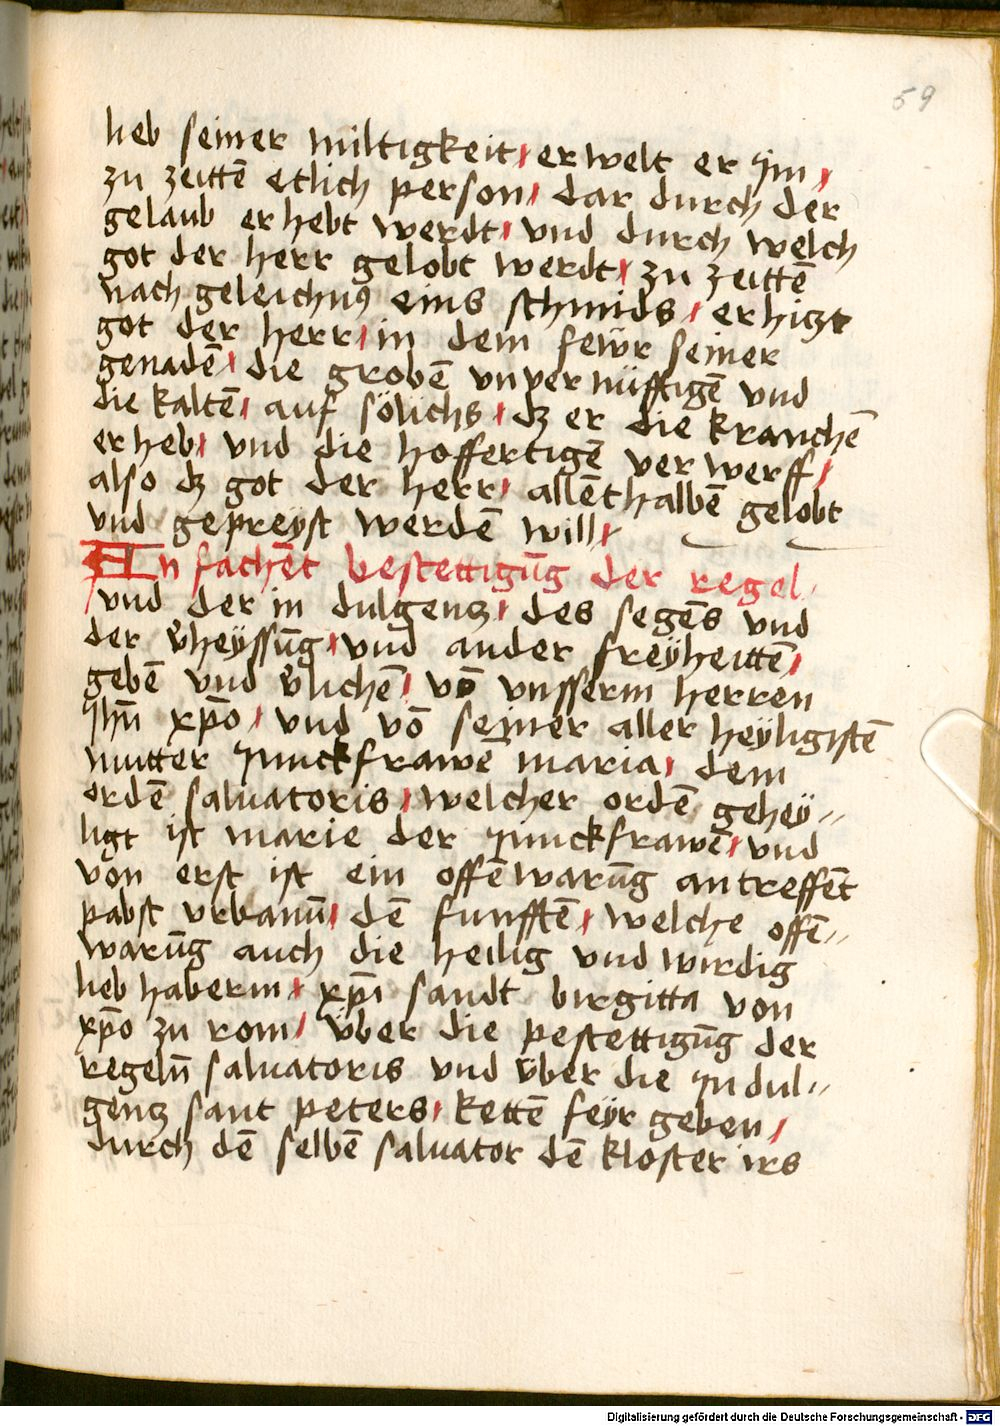 59
lieb seiner miltigkeit / erwelt er Jm /
zu zeittē etlich person / dar durch der
gelaub erhebt werdt / vnd durch welch
got der herr gelobt werdt / zu zeittē
nach geleichnuꝰ eins schmids / erhiczt
got der herr / in dem fewr seiner
genadē / die grobē vnvernüfftigē vnd
die kaltē / auf sölichs / dz er die kranchē
erheb / vnd die hoffertigē verwerff /
also dz got der herr / allēthalbē gelobt
vnd gepreÿst werdē will /
An fachēt bestettigūg der regel
/ vnd der in dulgencz / des segēs vnd
der v̉heÿssūg / vnd ander freÿheittē /
gebē vnd v̉lichē / vō vnsserm herren
Jhū xp̄o / vnd vō seiner aller heÿligistē
mutter Junckfrawē maria / dem
ordē saluatoris / welcher ordē geheÿ=
ligt ist marie der Junckfrawē / vnd
von erst ist ein offēwarūg antreffēt
pabst vrbanū / dē funfftē / welche offē=
warūg auch die heilig vnd wirdig
lieb haberin / xp̄i sandt birgitta von
xp̄o zu rom / über die pestettigūg der
regeln̄ saluatoris vnd über die Jndul=
gencz sant peters / kettē feÿr geben /
durch dē selbē saluator dē kloster irs
Digitalisierung gefördert durch die Deutsche Forschungsgemeinschaft - DFG